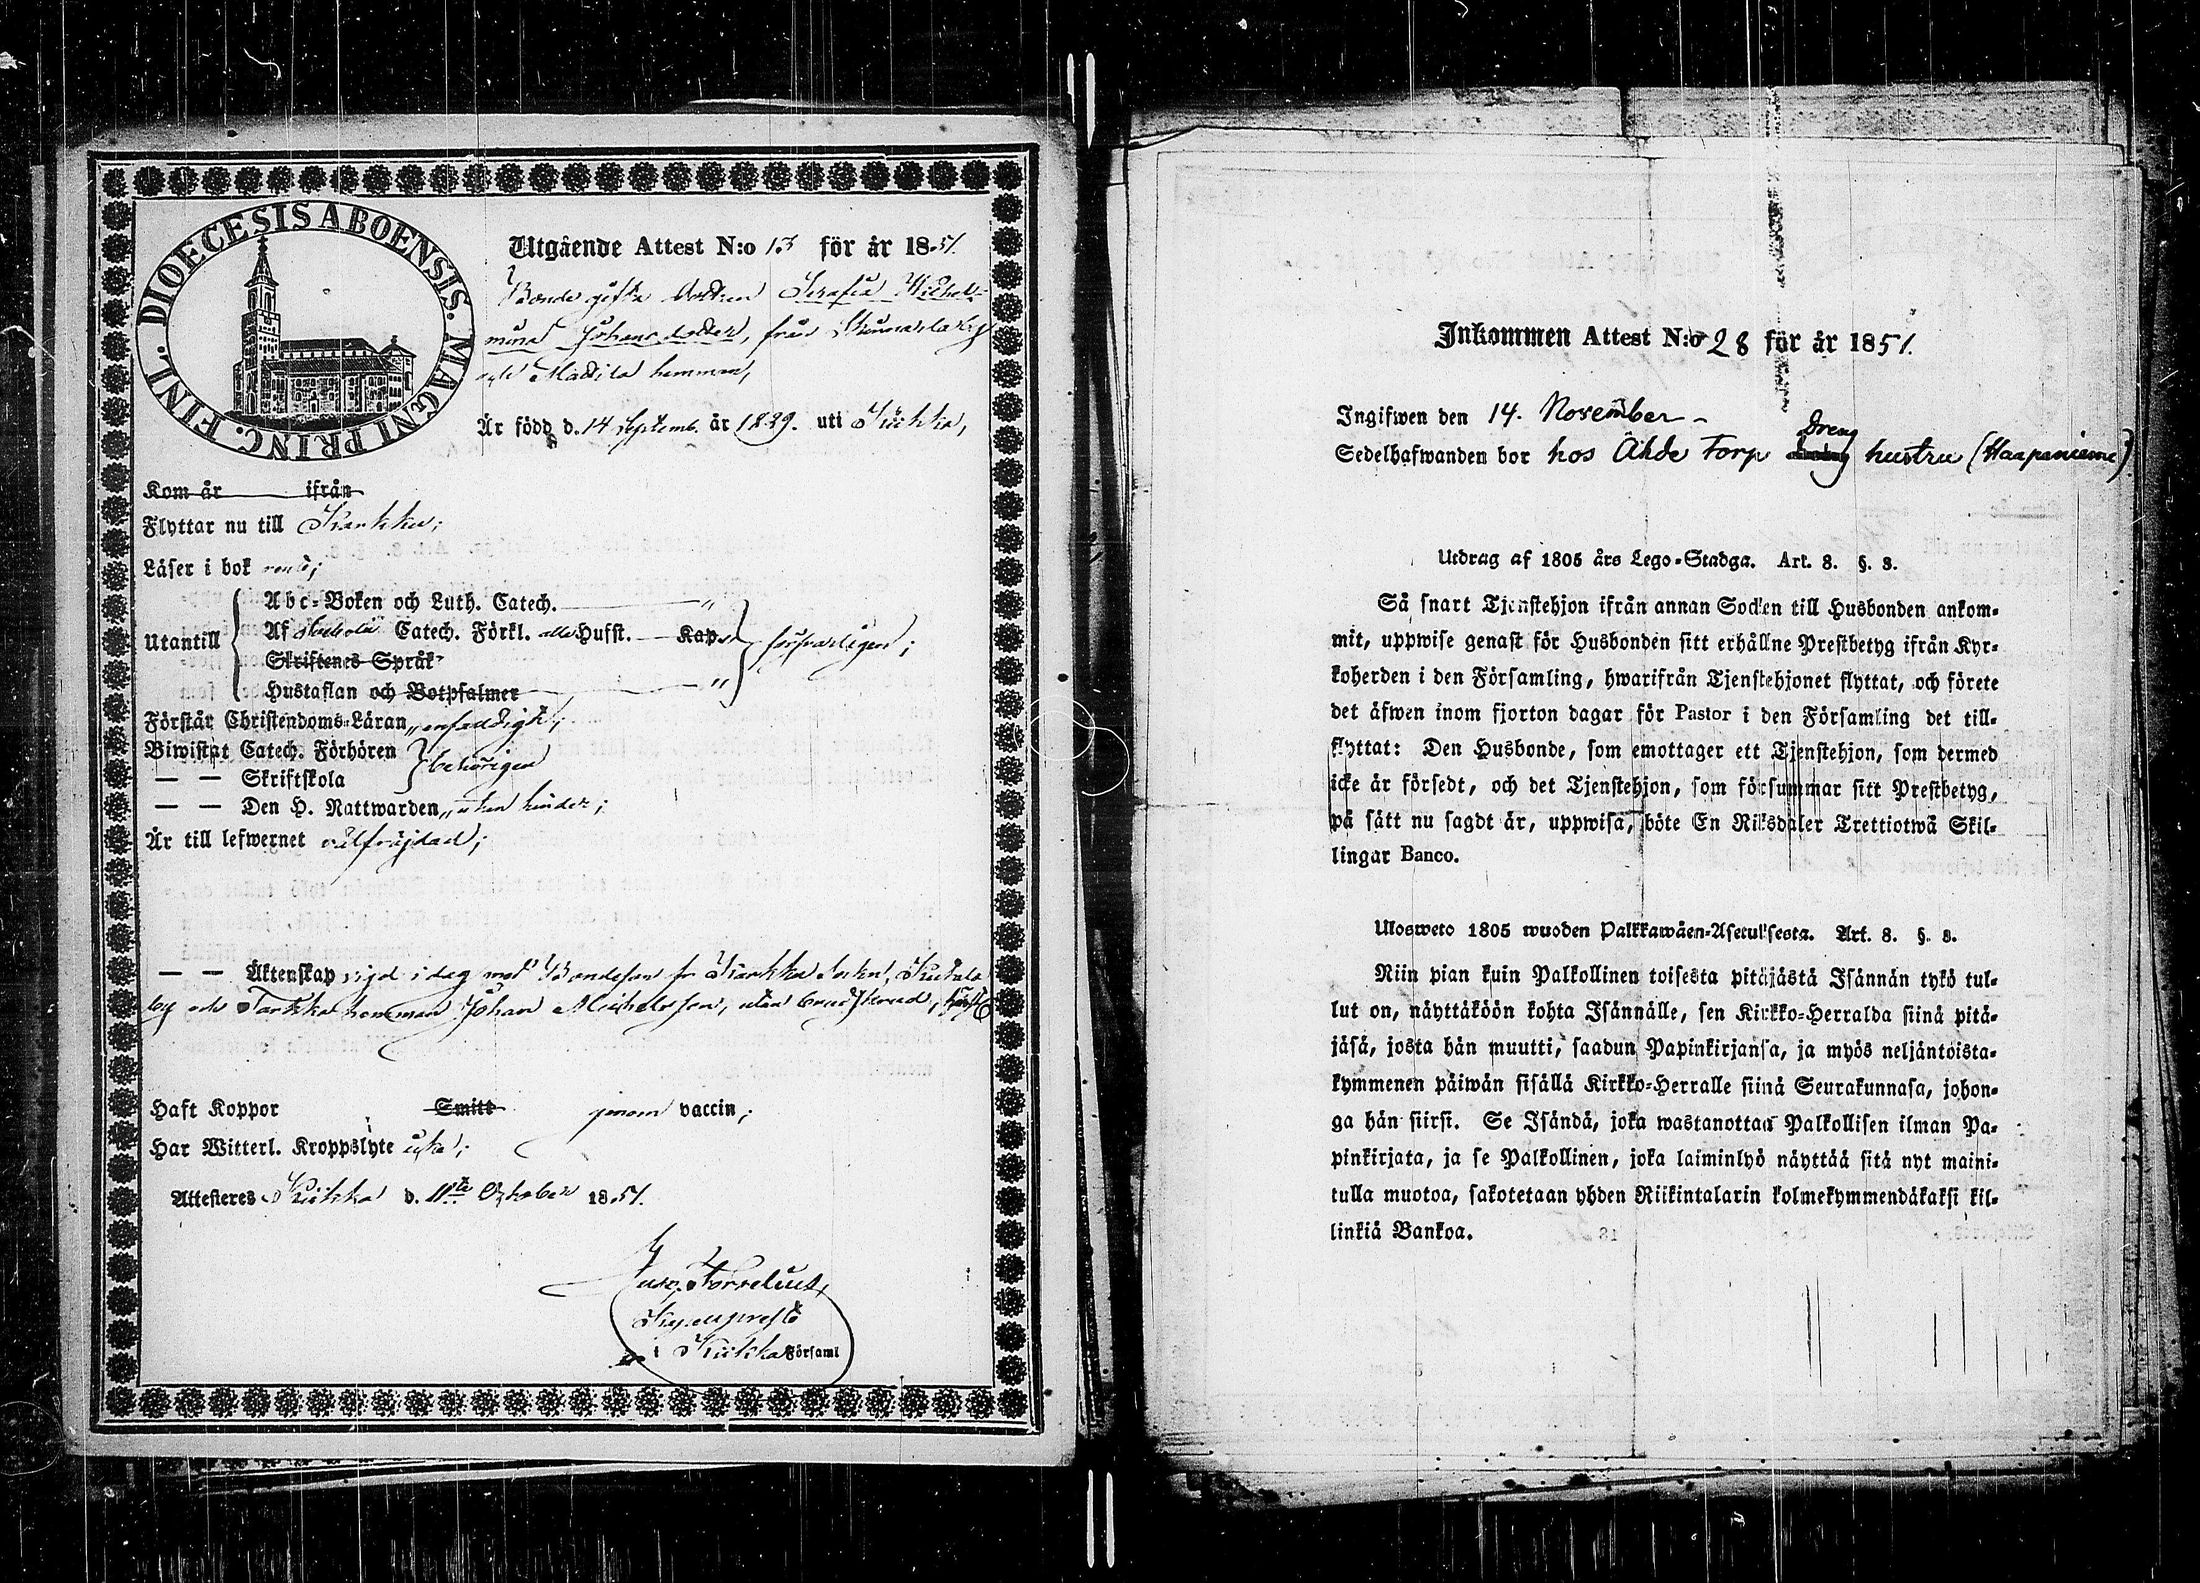 DIOECESIS ABOENSIS. MAGNI PRINC. FINL.
Utgående Attest N:o 13 för år 1851.
Bonde gifta dottren Serafia Wilhel-
mina Johansdotter, från
och Mattila hemman,
Är född d. 14 Septemb. år 1829. uti Kiikka,
Kom år ifrån
Flyttar nu till Karkku;
Läser i bok
Utantill
Abc-Boken och Luth. Catech. "
Af Catech. Förkl. alla Hufst. Kap.
Skriftenes Språk
Hustaflan och Botpsalmer "
försvarligen;
Förstår Christendoms-Läran enfaldigt;
Biwistat Catech. Förhören
— — Skriftskola
behörigen
— — Den H. Nattwarden, utan hinder;
Är till lefwernet välfräjdad;
— — Äktenskap vigd i dag med Bondeson fr Karkku Sockn,
by och Tarkka hemman Johan Michelsson, utan
Haft Koppor Smitt genom vaccin;
Har Witterl. Kroppslyte icke;
Attesteres Kiikka d. 11te October 1851.
Gust. Forselius,
i Kiikka Församl
Inkommen Attest N:o 28 för år 1851.
Ingifwen den 14. November
Dreng
Sedelhafwanden bor hos Ahde Torp hustru (Haapaniemi)
Utdrag af 1805 års Lego-Stadga. Art. 8. §. 8.
Så snart Tjenstehjon ifrån annan Socken till Husbonden ankom-
mit, uppwise genast för Husbonden sitt erhållne Prestbetyg ifrån Kyr-
koherden i den Församling, hwarifrån Tjenstehjonet flyttat, och förete
det äfwen inom fjorton dagar för Pastor i den Församling det till-
flyttat: Den Husbonde, som emottager ett Tjenstehjon, som dermed
icke är försedt, och det Tjenstehjon, som försummar sitt Prestbetyg,
på sätt nu sagdt är, uppwisa, böte En Riksdaler Trettiotwå Skil-
lingar Banco.
Ulosweto 1805 wuoden Palkkawäen-Asetuksesta. Art. 8. §. 8.
Niin pian kuin Palkollinen toisesta pitäjästä Isännän tykö tul-
lut on, näyttäköön kohta Isännälle, sen Kirkko-Herralda siinä pitä-
jäsä, josta hän muutti, saadun Papinkirjansa, ja myös neljäntoista-
kymmenen päiwän sisällä Kirkko-Herralle siinä Seurakunnasa, johon-
ga hän siirsi. Se Isändä, joka wastanottaa Palkollisen ilman Pa-
pinkirjata, ja se Palkollinen, joka laiminlyö näyttää sitä nyt maini-
tulla muotoa, sakotetaan yhden Riikintalarin kolmekymmendäkaksi kil-
linkiä Bankoa.